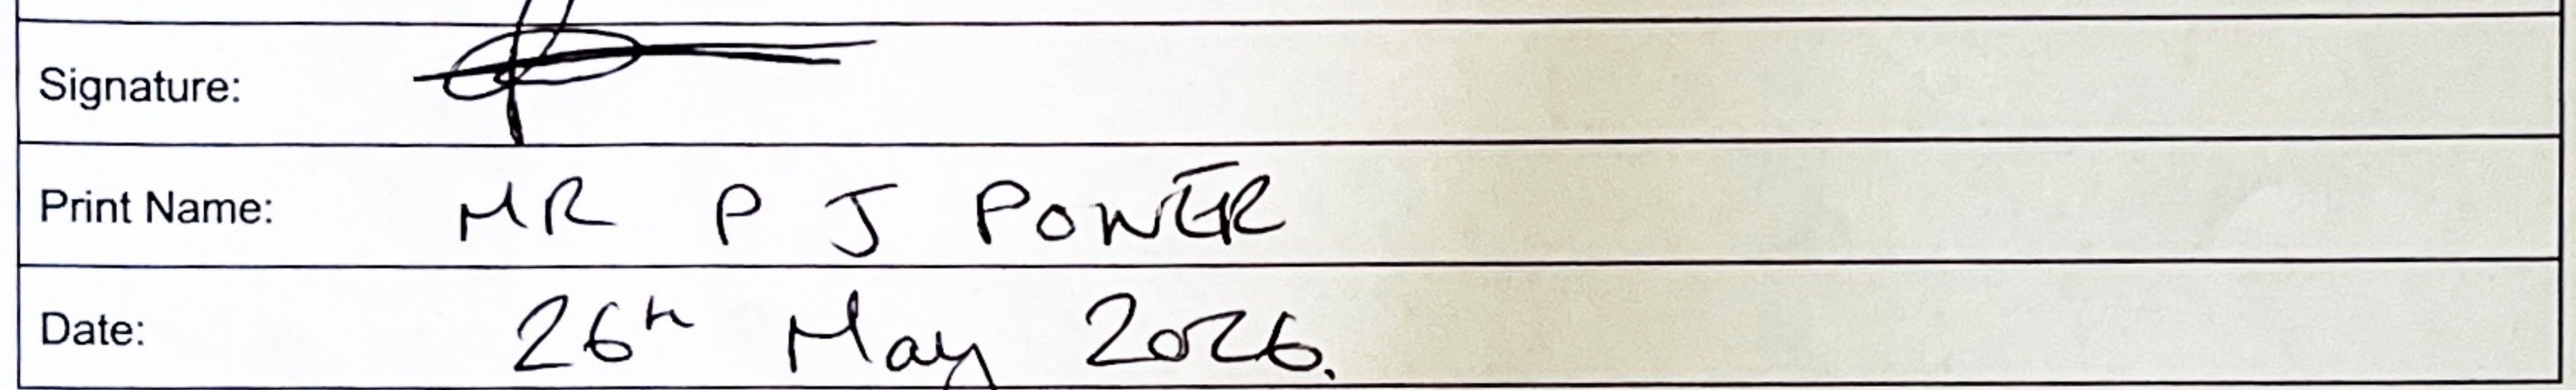 Signature:
Print Name: MR P J POWER
Date: 26th May 2026.